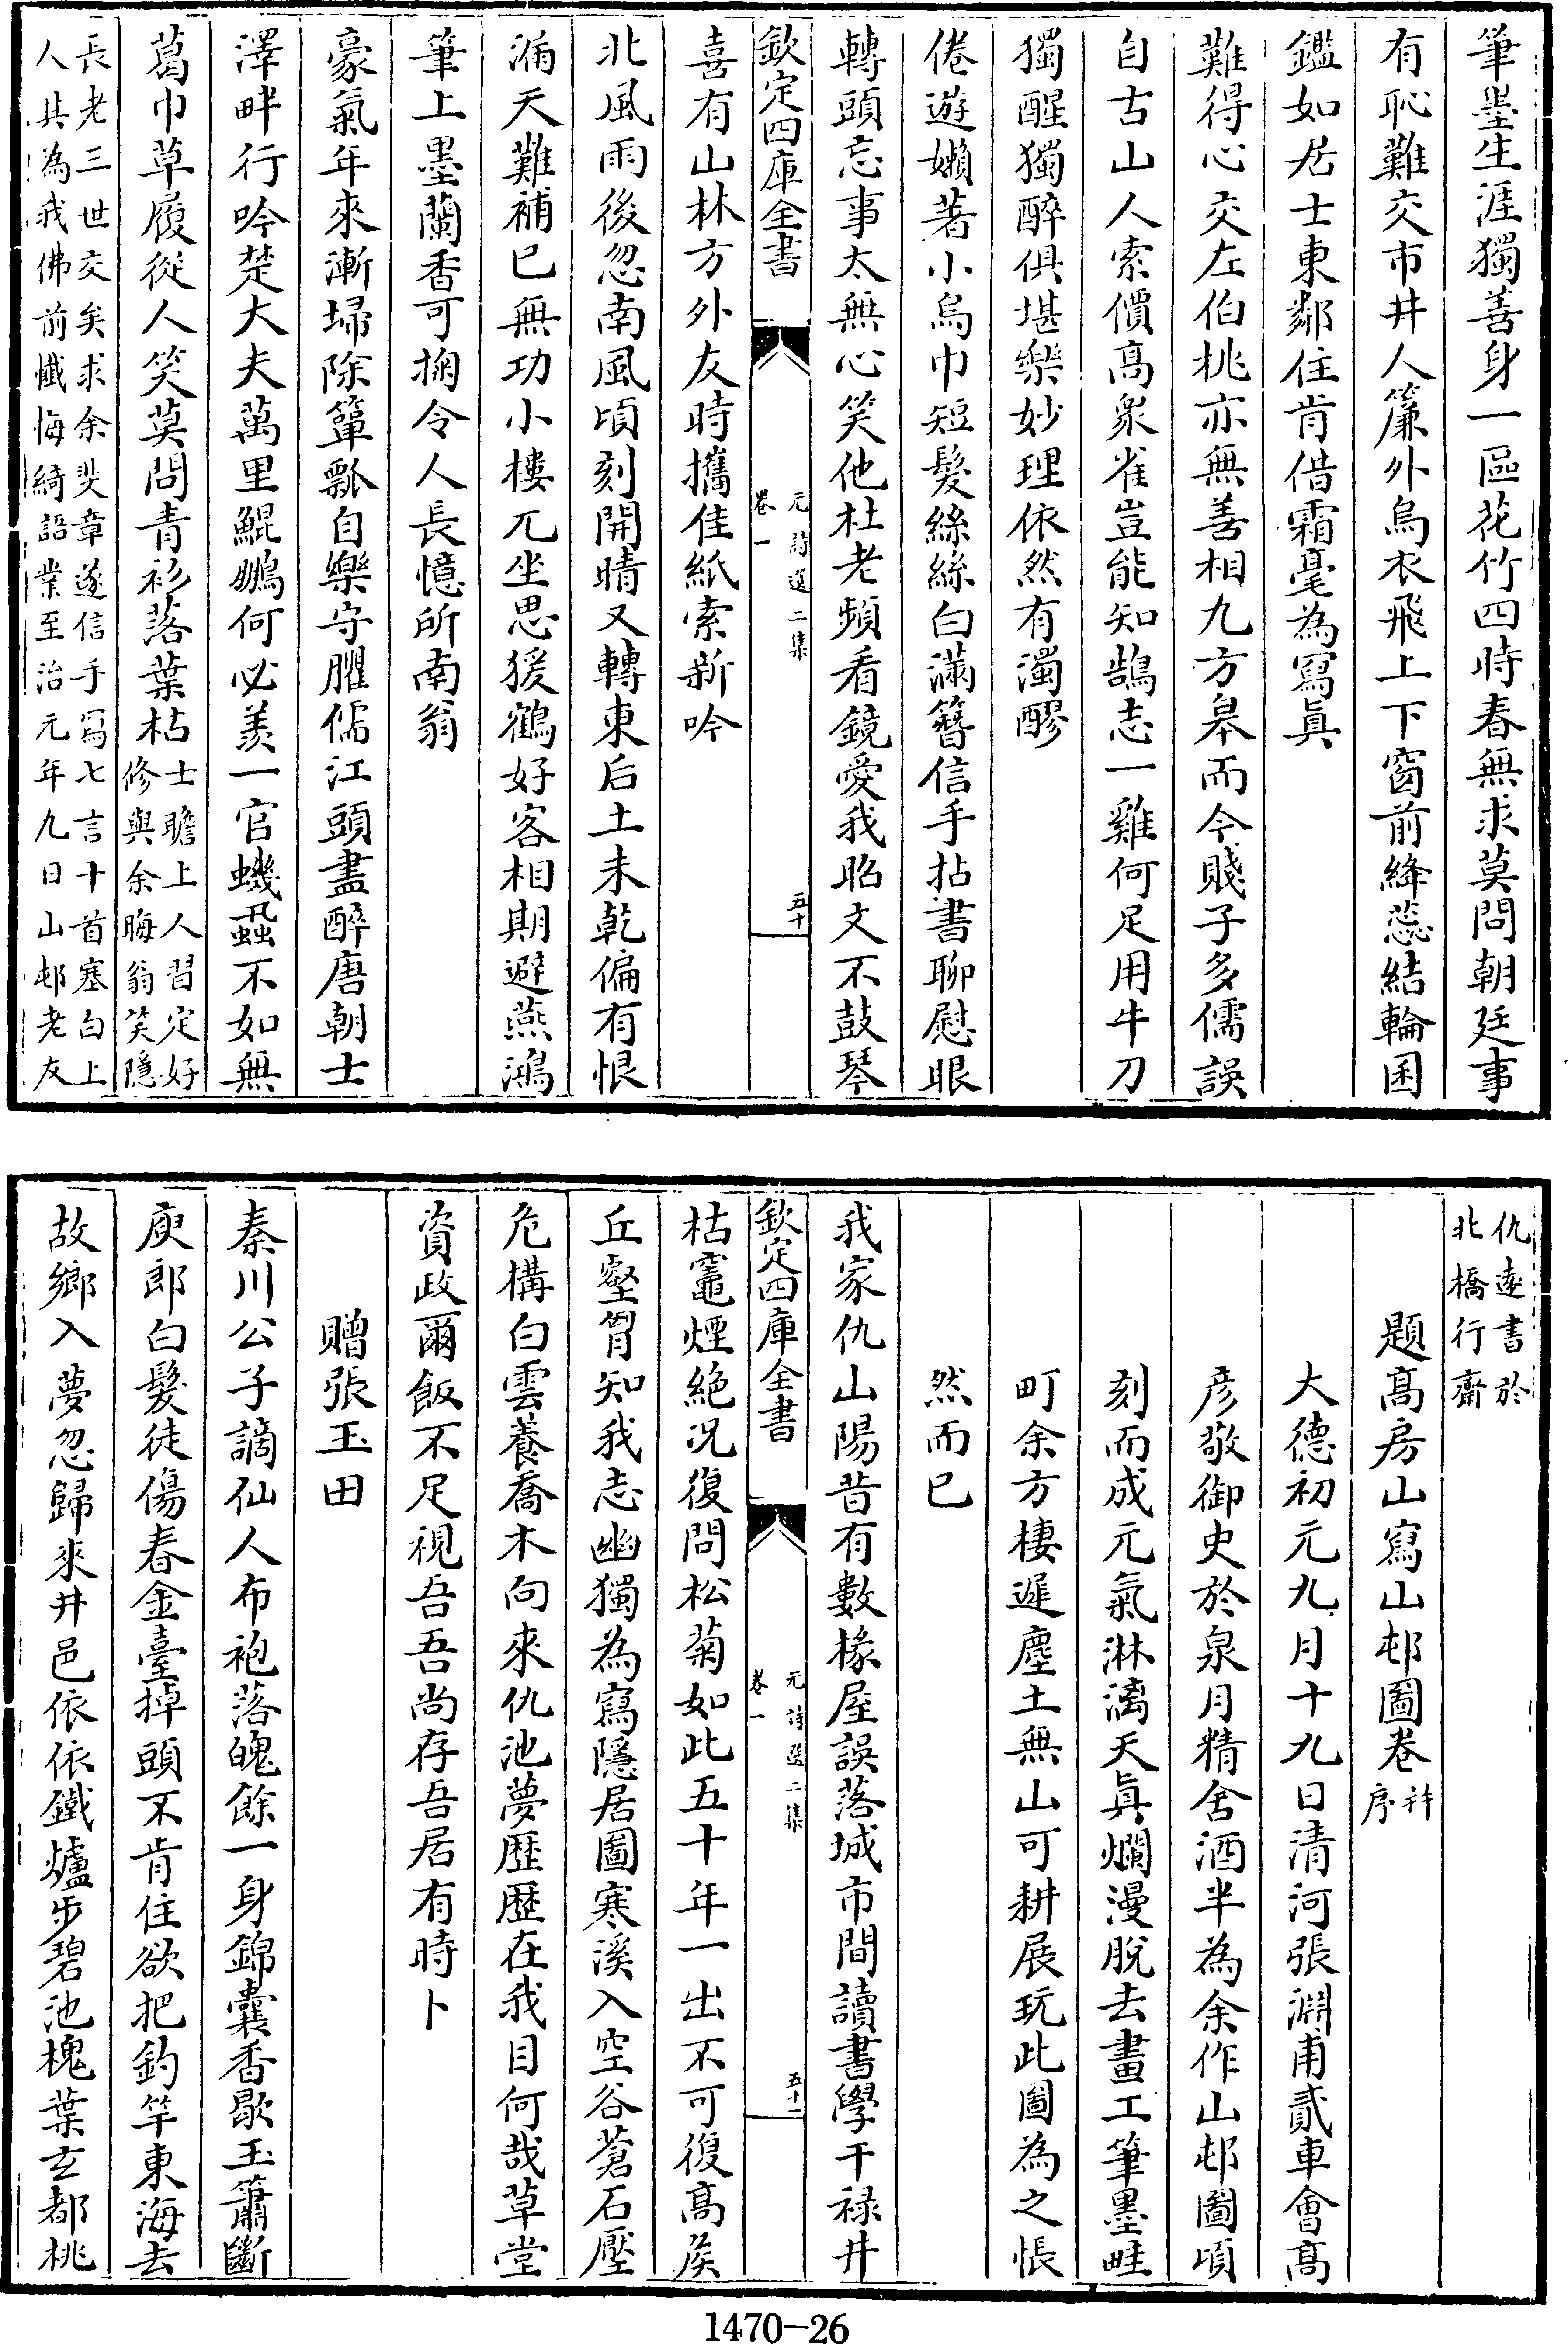 筆墨生涯獨善身一區花竹四時春無求莫問朝廷事
有恥難交市井人簾外烏衣飛上下窗前絳蕊結輪囷
鑑如居士東鄰住肯借霜毫為寫眞
難得心交左伯桃亦無善相九方皋而今賤子多儒誤
自古山人索價髙衆雀豈能知鵠志一雞何足用牛刀
獨醒獨醉俱堪樂妙理依然有濁醪
倦遊嬾著小烏巾短髮絲絲白滿簪信手拈書聊慰眼
轉頭忘事太無心笑他杜老頻看鏡愛我昭文不鼓琴
欽定四庫全書
元詩選二集
卷一
五十
喜有山林方外友時攜佳紙索新吟
北風雨後忽南風頃刻開晴又轉東后土未乾偏有恨
漏天難補已無功小樓兀坐思猨鶴好客相期避燕鴻
筆上墨蘭香可掬令人長憶所南翁
豪氣年來漸埽除簞瓢自樂守臞儒江頭盡醉唐朝士
澤畔行吟楚大夫萬里鯤鵬何必羨一官蟣蝨不如無
葛巾草履從人笑莫問青衫落葉枯
士瞻上人習定好
修與余晦翁笑隱
長老三世交矣求余斐章遂信手寫七言十首塞白上
人其為我佛前懺悔綺語業至治元年九日山邨老友
仇遠書於
北橋行齋
題髙房山寫山邨圖卷
并
序
大德初元九月十九日清河張淵甫貳車會髙
彦敬御史於泉月精舍酒半為余作山邨圖頃
刻而成元氣淋漓天眞爛漫脫去畫工筆墨畦
町余方棲遲塵土無山可耕展玩此圖為之悵
然而已
我家仇山陽昔有數椽屋誤落城市間讀書學干禄井
欽定四庫全書
元詩選二集
卷一
五十一
枯竈煙絶况復問松菊如此五十年一出不可復髙矦
丘壑胷知我志幽獨為寫隱居圖寒溪入空谷蒼石壓
危構白雲養喬木向來仇池夢歷歷在我目何哉草堂
資政爾飯不足視吾吾尚存吾居有時卜
贈張玉田
秦川公子謫仙人布袍落魄餘一身錦囊香歇玉簫斷
庾郎白髮徒傷春金臺掉頭不肯住欲把釣竿東海去
故鄉入夢忽歸來井邑依依鐵爐步碧池槐葉玄都桃
1470-26